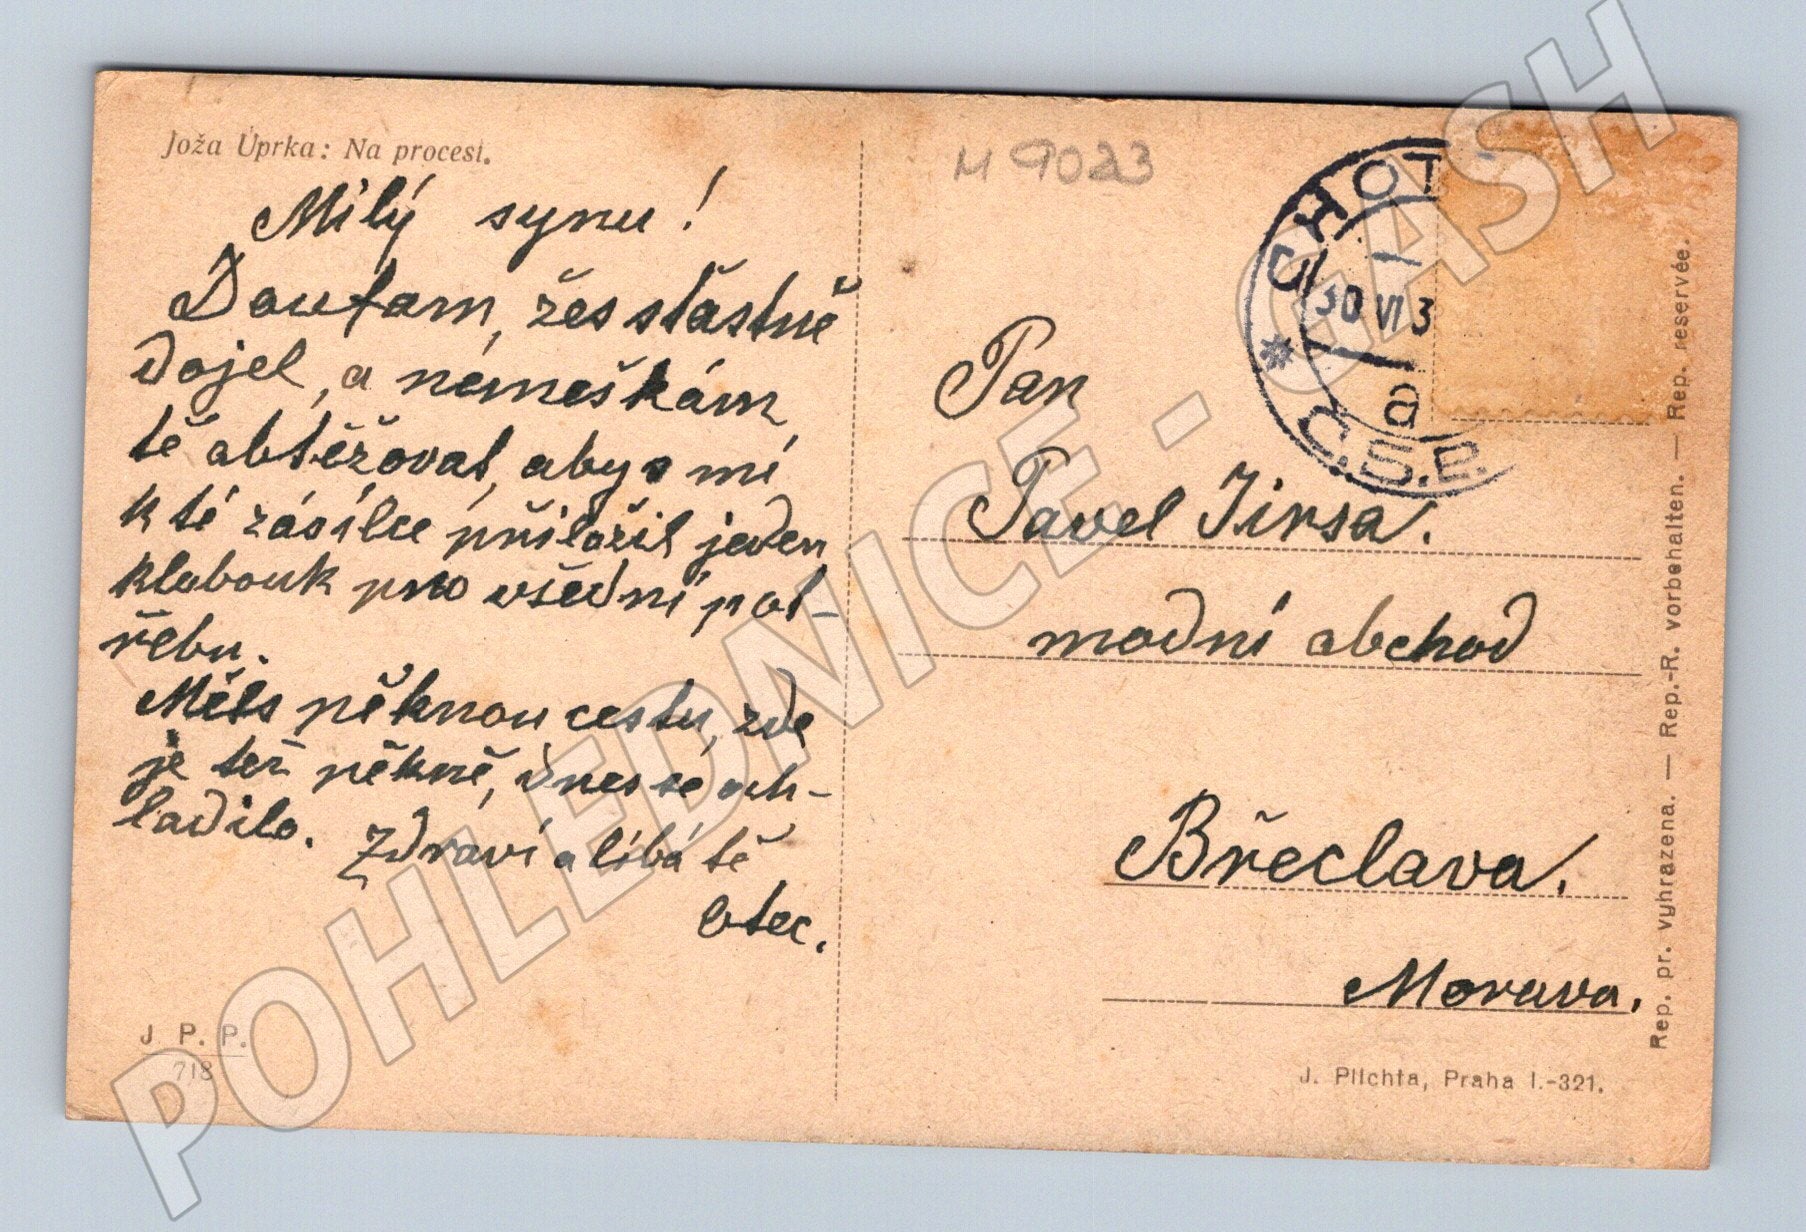 Joža Úprka: Na procesí.
M 9023
Milý synu!
Doufám, žes šťastně
dojel, a nemeškám,
tě obtěžovat, abys mi
k té zásilce přiložil jeden
klobouk pro všední pot-
řebu.
Měls pěknou cestu, zde
je též pěkně, dnes se och-
ladilo. Zdraví a líbá tě
Otec.
J. P. P.
718
CHOT
30 VI 3
a
Č.S.R.
Pan
Pavel Jirsa.
modní obchod
Břeclava.
Morava.
J. Plichta, Praha I.-321.
Rep. pr. vyhrazena. — Rep.-R. vorbehalten. — Rep. reservée.
POHLEDNICE - GASH